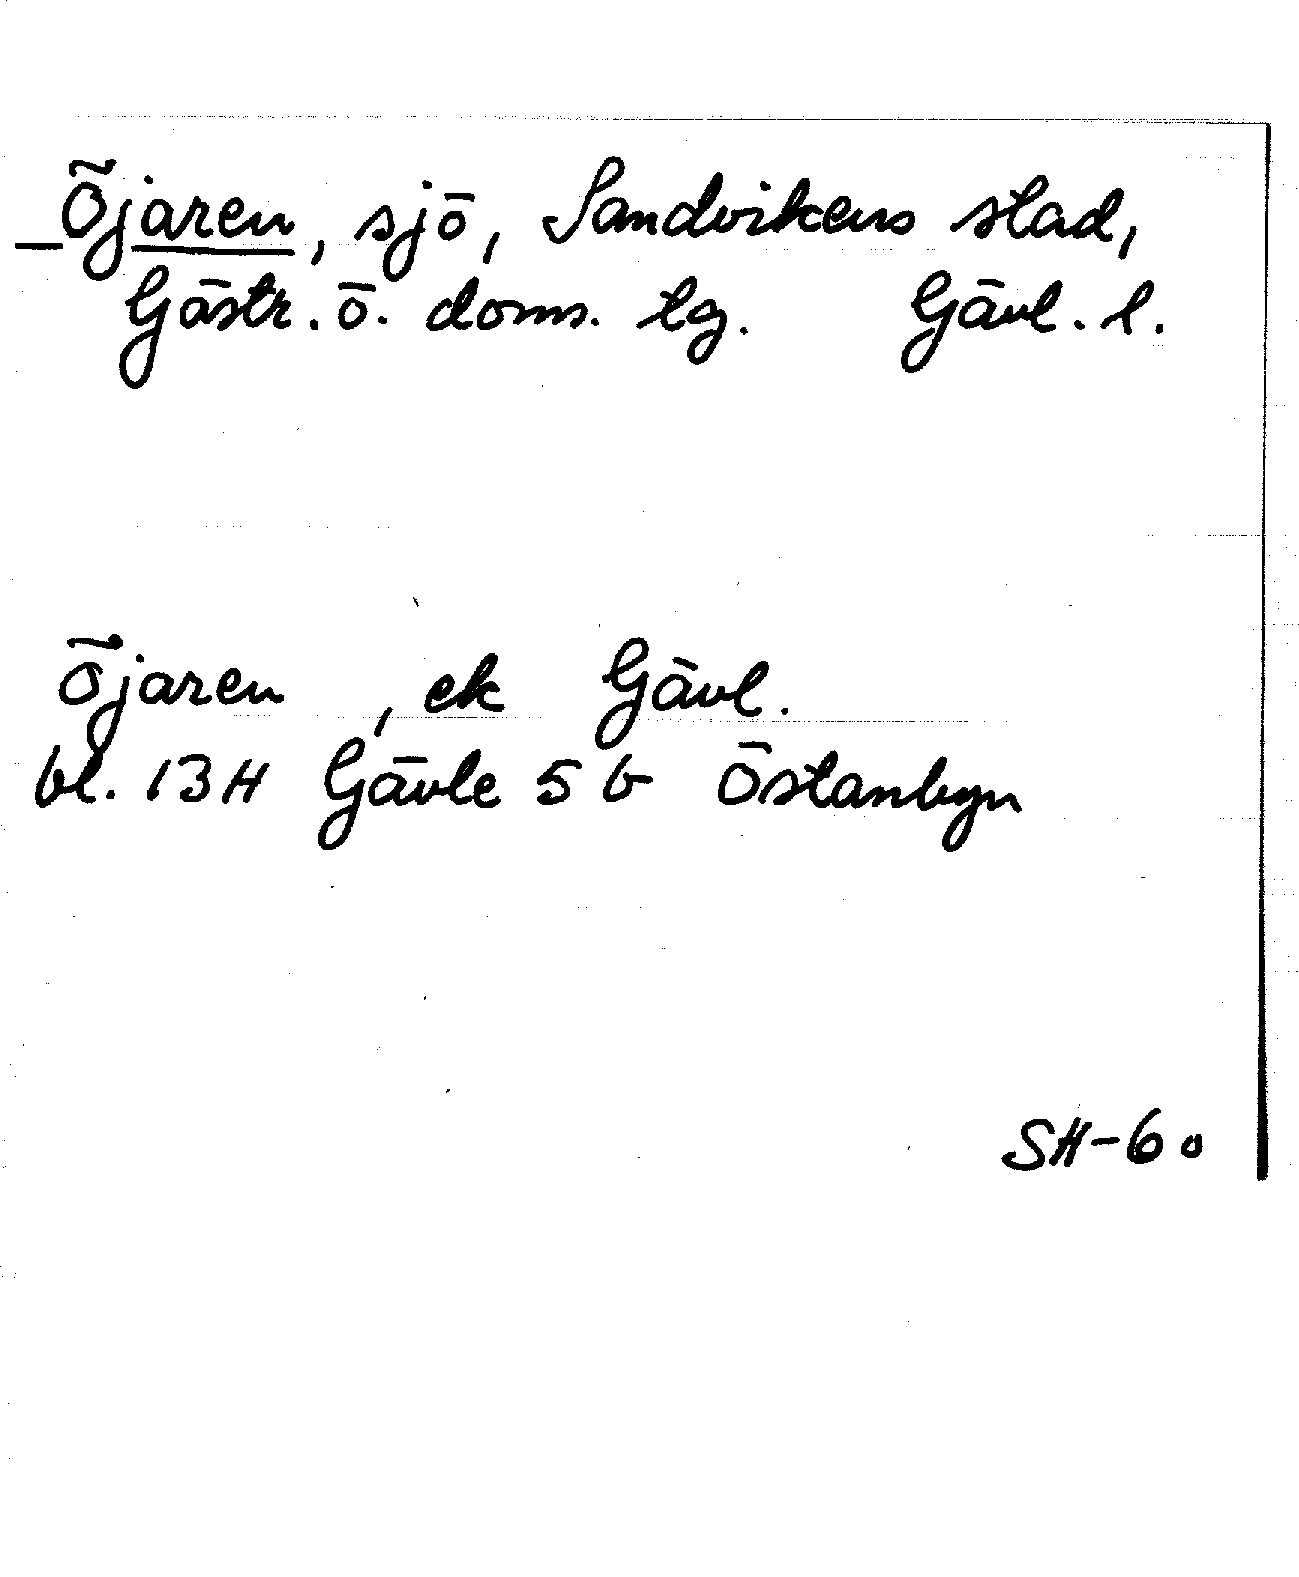 Öjaren, sjö, Sandvikens stad,
Gästr. ö. doms. tg. Gävl. l.
Öjaren, ek Gävl.
bl. 13H Gävle 5 b Östanbyn
SH-60